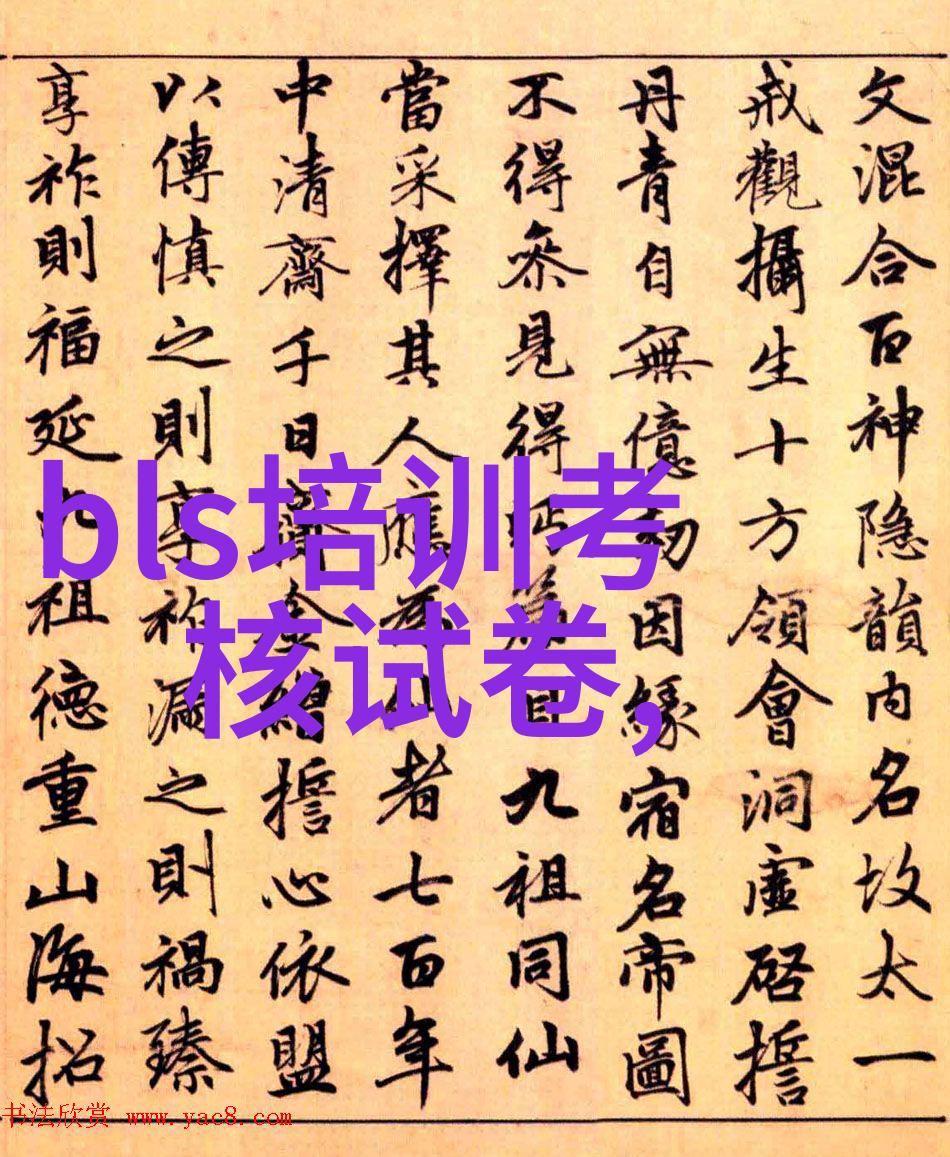 文混合百神隐韻内名故太一
戒觀攝生十方領會洞虚啓誓
丹青自無億劫因緣宿名帝圖
不得叅見得眄篇目九祖同仙
當采擇其人應爲仙者七百年
中清齋千日齎金繒誓心依盟
以傳慎之則享祚漏之則禍臻
享祚則福延九祖德重山海招
bls培训考
核试卷,
书法欣赏 www.yac8.com